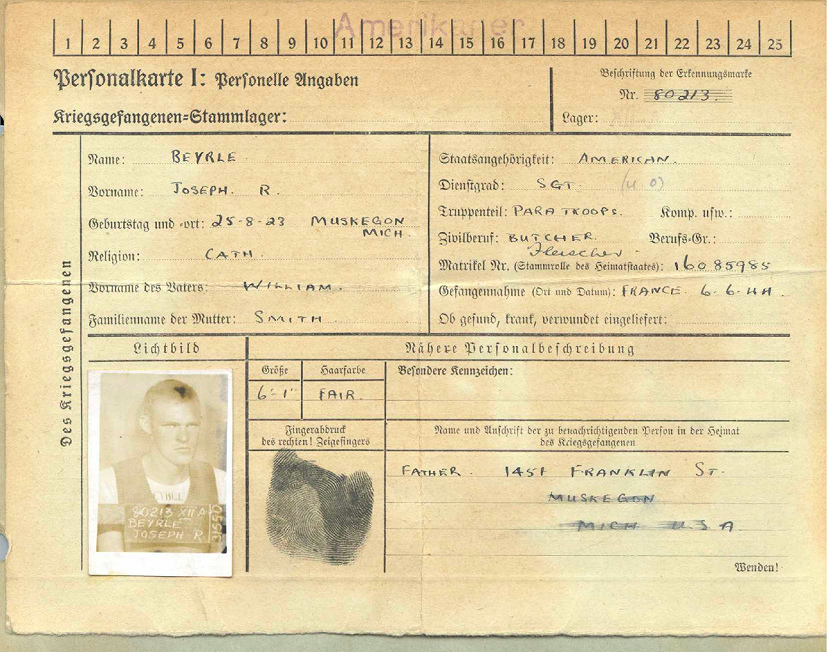 Amerikaner
1 2 3 4 5 6 7 8 9 10 11 12 13 14 15 16 17 18 19 20 21 22 23 24 25
Personalkarte I: Personelle Angaben
Beschriftung der Erkennungsmarke
Nr. 80213.
Kriegsgefangenen-Stammlager:
Lager:
Des Kriegsgefangenen
Name: BEYRLE
Vorname: JOSEPH. R.
Geburtstag und -ort: 25-8-23 MUSKEGON
MICH.
Religion: CATH.
Vorname des Vaters: WILLIAM.
Familienname der Mutter: SMITH
Staatsangehörigkeit: AMERICAN.
Dienstgrad: SGT. (U O)
Truppenteil: PARATROOPS. Komp. usw.:
Zivilberuf: BUTCHER. Berufs-Gr.:
Fleischer
Matrikel Nr. (Stammrolle des Heimatstaates): 16085985
Gefangennahme (Ort und Datum): FRANCE 6-6-44.
Ob gesund, krank, verwundet eingeliefert:
Lichtbild
Nähere Personalbeschreibung
Größe Haarfarbe Besondere Kennzeichen:
6'-1" FAIR.
Fingerabdruck
des rechten! Zeigefingers
Name und Anschrift der zu benachrichtigenden Person in der Heimat
des Kriegsgefangenen
FATHER. 1451 FRANKLIN ST.
MUSKEGON
MICH U.S.A
80213 XII A
BEYRLE
JOSEPH R
Wenden!